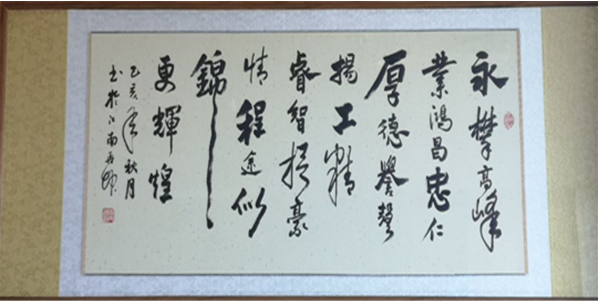 永攀高峰
業鴻昌忠仁
厚德譽聲
揚工精
睿智抒豪
情程途似
錦
更輝煌
己亥年秋月
书於江南